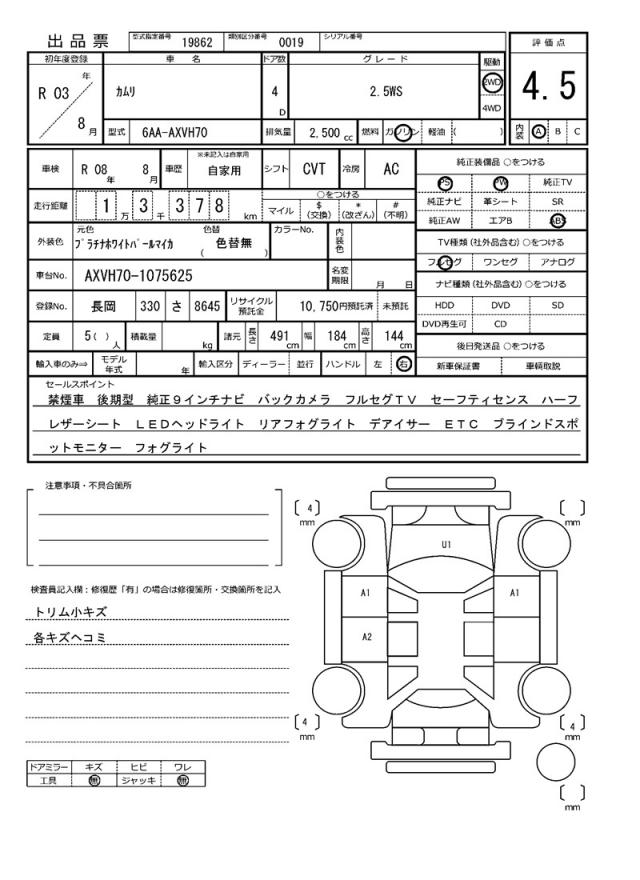 出品票 型式指定番号 19862 類別区分番号 0019 シリアル番号
評価点
4.5
内装 A B C
初年度登録 車名 ドア数 グレード 駆動
R 03 年 8 月
カムリ 4 D 2.5WS 2WD 4WD
型式 6AA-AXVH70 排気量 2,500 cc 燃料 ガソリン 軽油 ( )
車検 R 08 年 8 月 車歴 ※未記入は自家用 自家用 シフト CVT 冷房 AC
走行距離 1 3 万 3 千 7 8 km
○をつける
マイル $ (交換) * (改ざん) # (不明)
外装色 元色 プラチナホワイトパールマイカ 色替 ( 色替無 ) カラーNo. 内装色
車台No. AXVH70-1075625 名変期限 月 日
登録No. 長岡 330 さ 8645 リサイクル預託金 10,750円預託済 未預託
定員 5( ) 人 積載量 kg 諸元 長さ 491 cm 幅 184 cm 高さ 144 cm
輸入車のみ⇒ モデル年式 年 輸入区分 ディーラー 並行 ハンドル 左 右
純正装備品 ○をつける
PS PW 純正TV
純正ナビ 革シート SR
純正AW エアB ABS
TV種類 (社外品含む) ○をつける
フルセグ ワンセグ アナログ
ナビ種類 (社外品含む) ○をつける
HDD DVD SD
DVD再生可 CD
後日発送品 ○をつける
新車保証書 車輌取説
セールスポイント
禁煙車 後期型 純正9インチナビ バックカメラ フルセグTV セーフティセンス ハーフ
レザーシート LEDヘッドライト リアフォグライト デアイサー ETC ブラインドスポ
ットモニター フォグライト
注意事項・不具合箇所
検査員記入欄：修復歴「有」の場合は修復箇所・交換箇所を記入
トリム小キズ
各キズヘコミ
ドアミラー キズ ヒビ ワレ
工具 無 ジャッキ 無
[ 4 ] mm
[ ] mm
U1
A1 A1
A2
[ 4 ] mm
[ 4 ] mm
[ ] mm